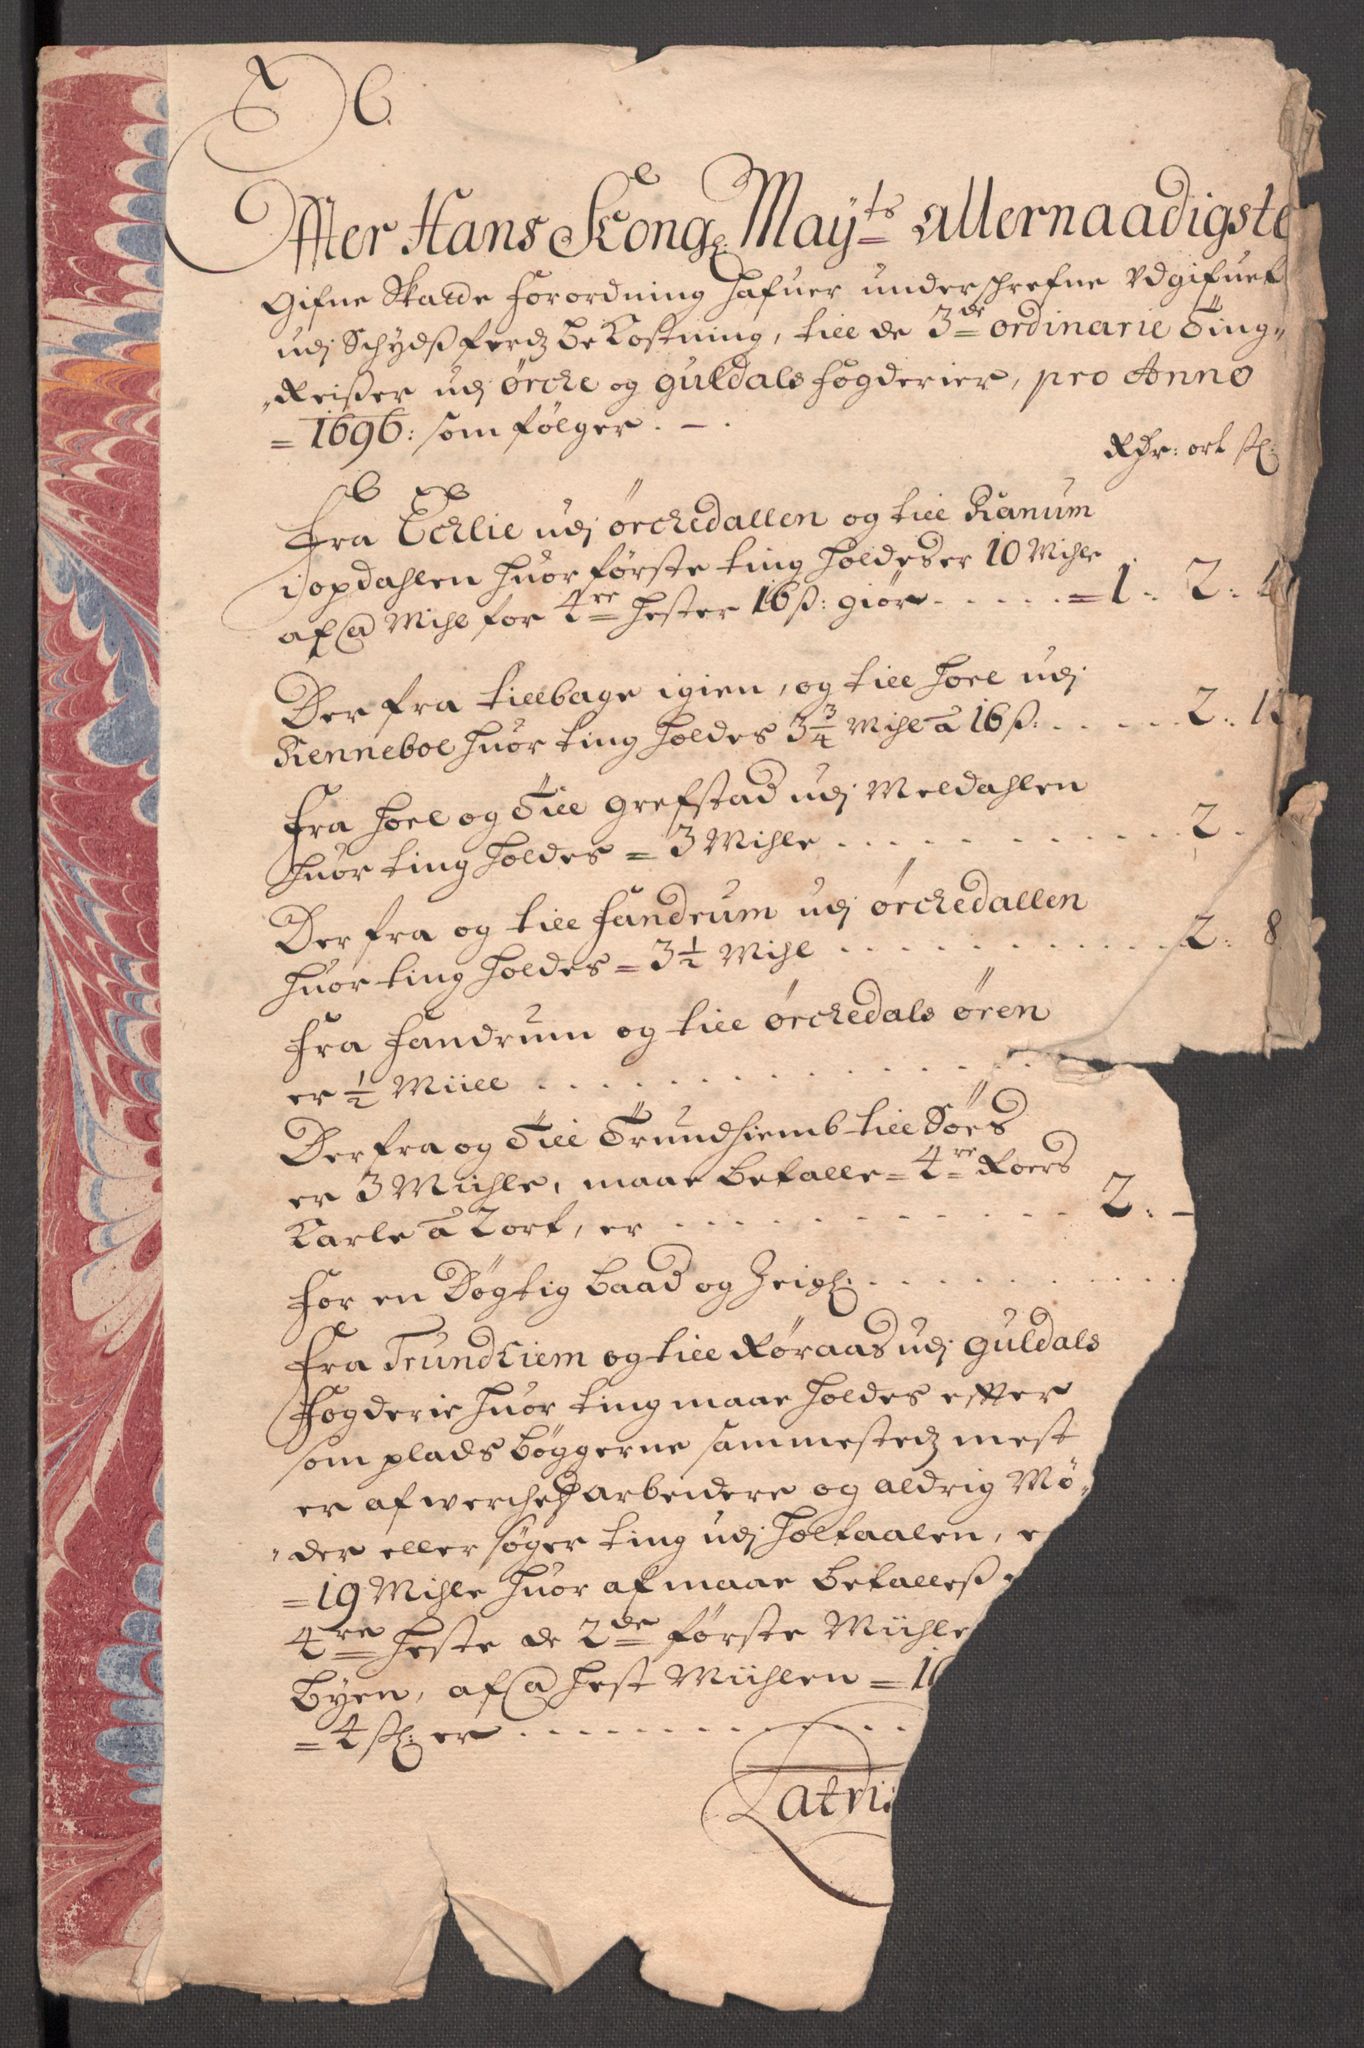 Effter Hans Kong: Mayts allernaadigste
Gifne Skatte forordning hafuer underschrefne Udgifuet
udj Schydsferdz bekostning, till de 3de ordinarie Ting-
Reiser udj Ørche og guldals fogderier, pro Anno
= 1696: som følger . - .
Rdr: ort sk:
Fra Echlie udj Ørchedallen og till Ranum
i opdahlen huor første ting holdes er 10 Mihle
af @ Mihl for 4re hester 16 ß: giør - - - - - = 1. 2. 4
Der fra tillbage igien, og till hoel udj
Renneboe huor ting holdes 3 3/4 Mihl â 16 ß: - - - - 2. 1
Fra hoel og Till grefstad udj Meldahlen
huor ting holdes = 3 Mihle . . . . . . . . . 2.
Der fra og till fandrum udj Ørchedallen
huor ting holdes = 3 1/2 Mihl . . . . . . . . . 2. 8
Fra fandrum og till Ørchedals øren
er 1/2 Miill . . . . . . . . . . . . .
Der fra og Till Trundhiemb till Søes
er 3 Miihle, maae betalle = 4re Roers
Karle â 2 ort, er - - - - - - - - - - - 2. -
For en Døgtig baad og Zeigl: . . . . . . . . .
Fra Trundhiem og till Røraas udj guldals
Fogderie huor ting maae holdes effter
som plads bøggerne sammestedz mest
er af werchetz arbeidere og aldrig Mø-
-der eller søger ting udj holtaalen, e
= 19 Mihle huor af maae betalleß
4re heste de 2de første Miihle
byen, af @ hest Miihlen = 1
= 4 sk: er . . . . . . . . . . .
Latri